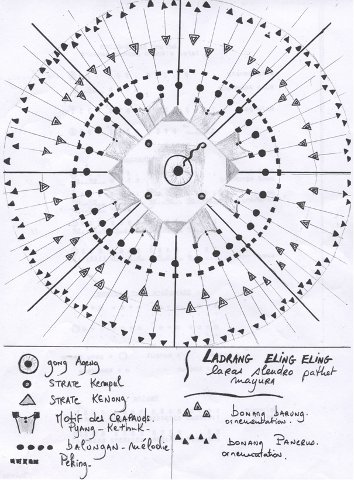 gong Ageng
STRATE Kempul
STRATE KENONG
MOTIF des CRAPAUDS.
Pyang-Kethuk-
balungan-mélodie
Peking-
LADRANG ELING ELING
laras slendro pathet
manyura
bonang barung.
ornementation.
bonang Panerus.
ornementation.